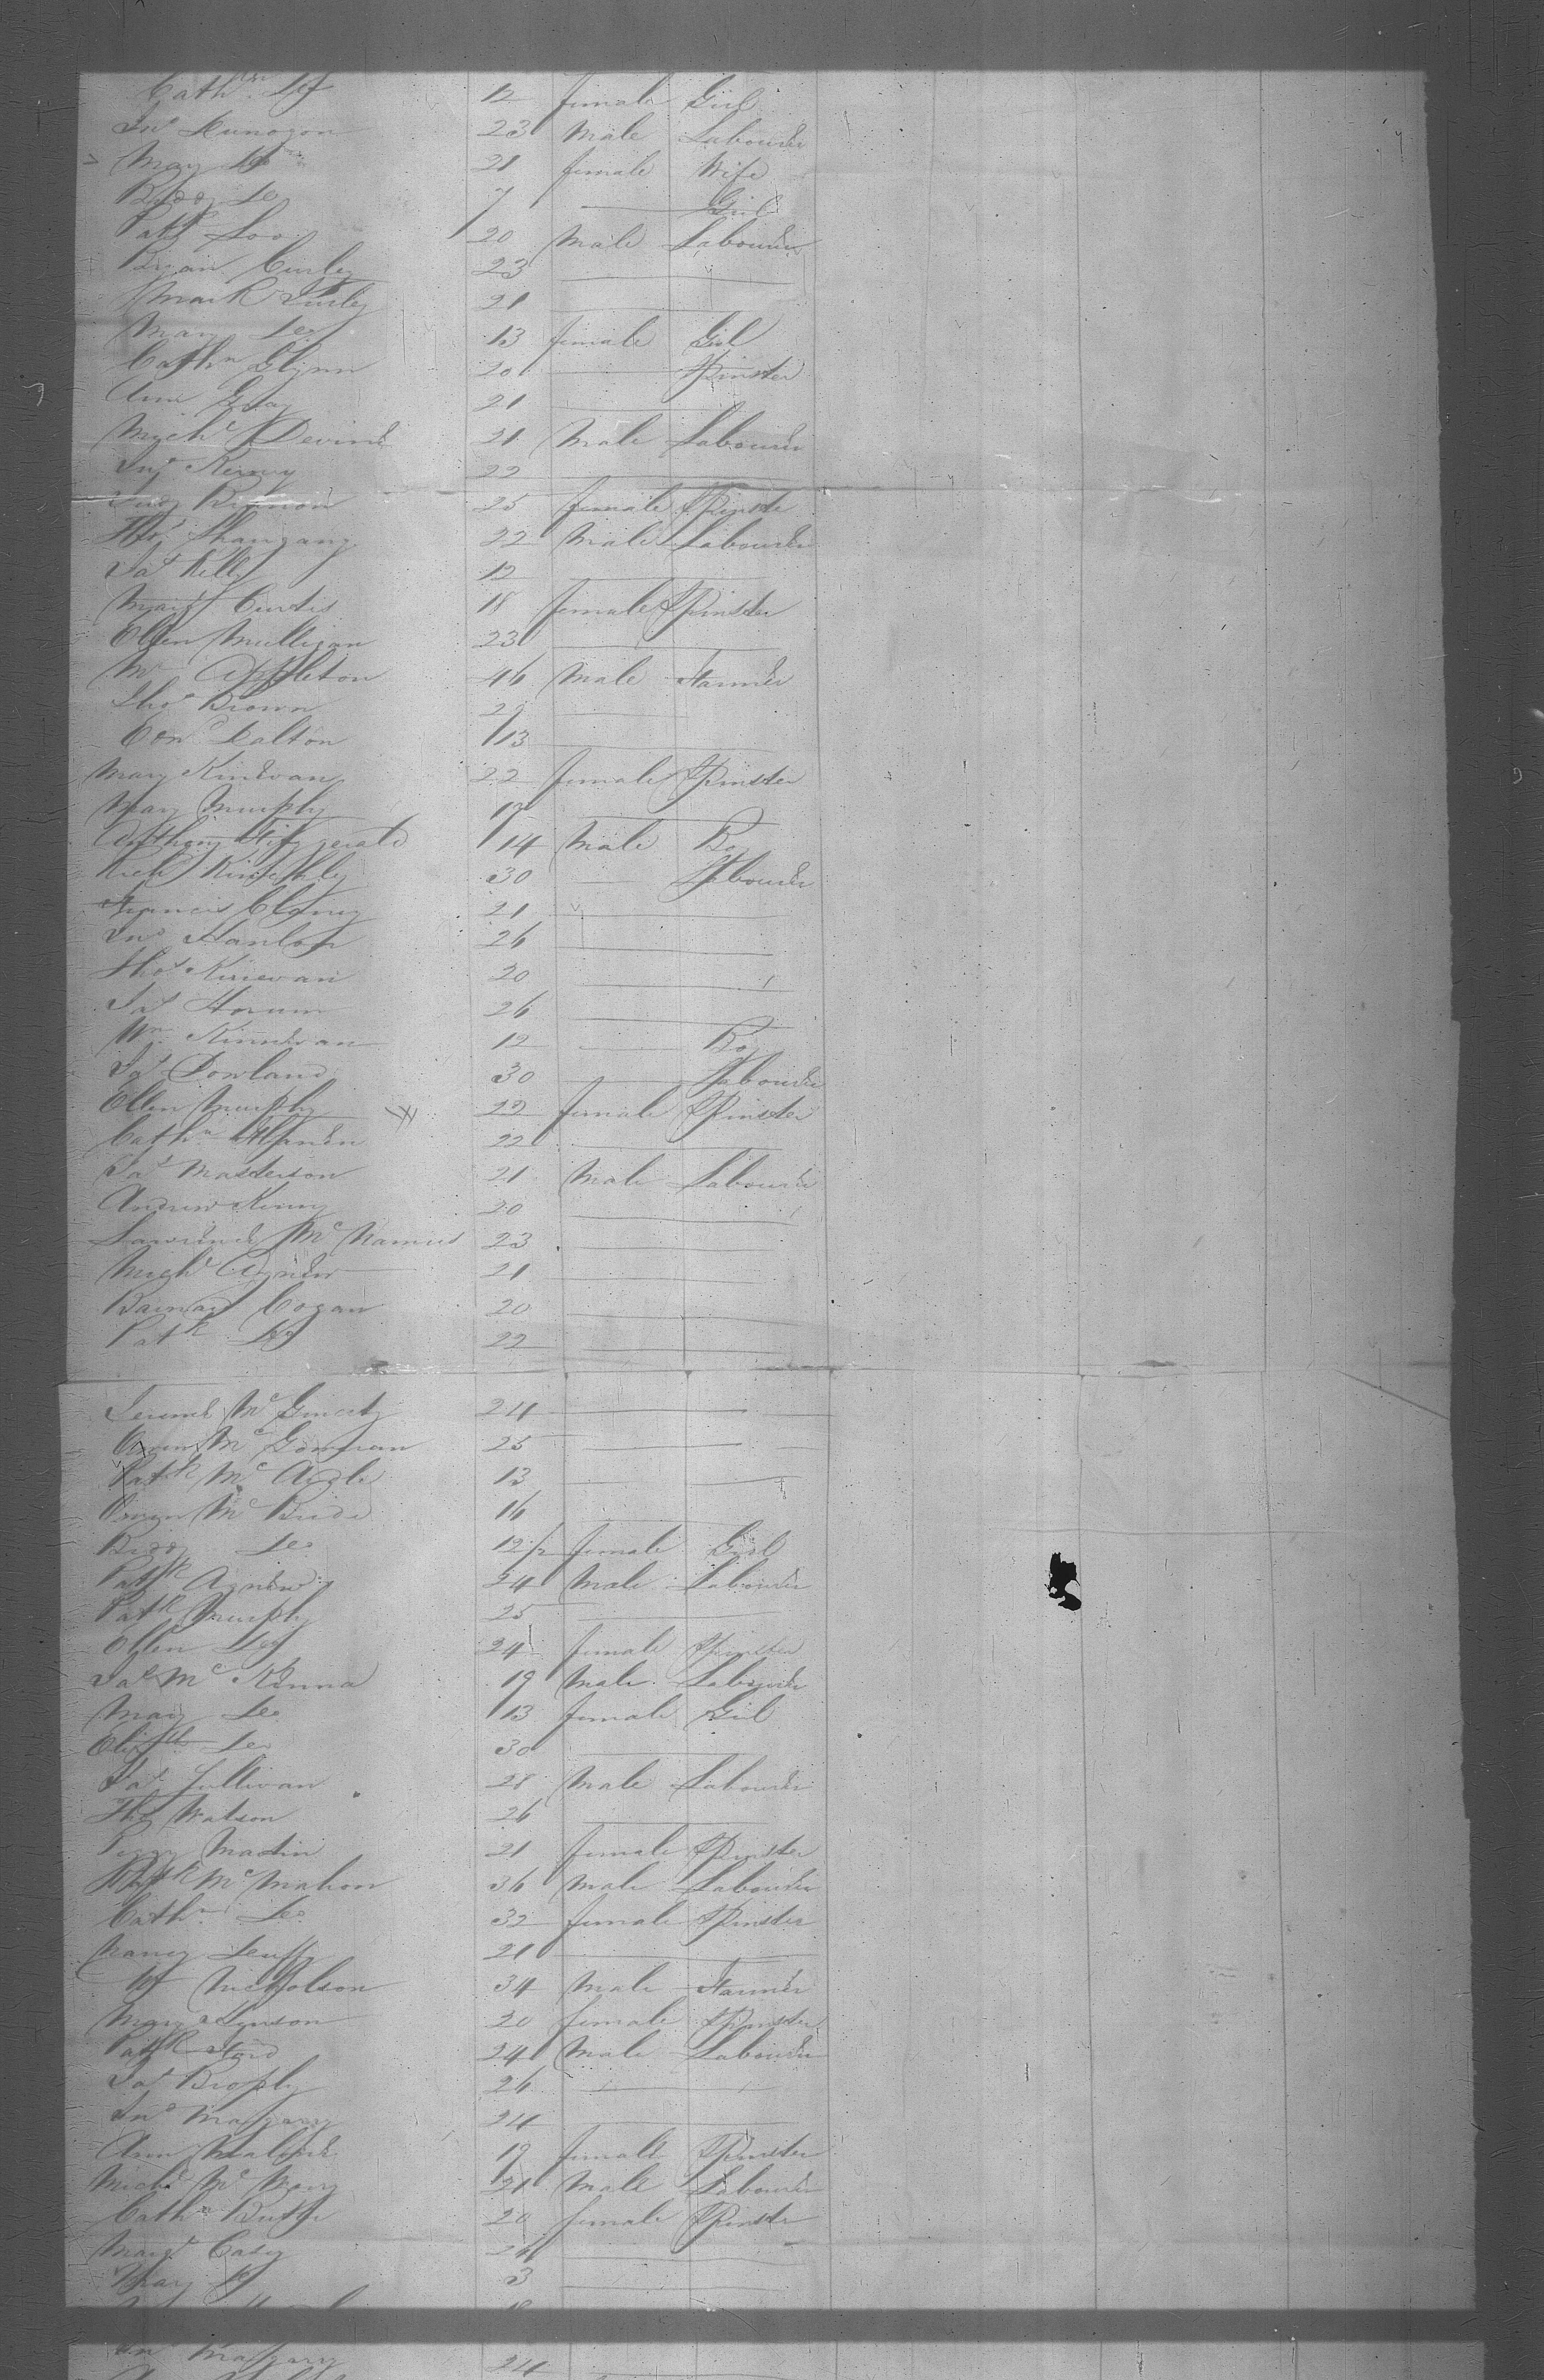 Cathn Do 12 female Girl
Jno 23 Male Labourer
Mary Do 21 female Wife
Biddy Do 7 — Girl
Patk Do 20 Male Labourer
Bryan Curley 23 —
Mark Curley 21 —
Mary Do 13 female Girl
Cathn Glynn 20 — Spinster
Ann Gray 21 —
Mychl Devine 21 Male Labourer
Jno Kenny 22 —
Judy 25 female Spinster
Thos 22 Male Labourer
Jas Kelly 12 —
Margt Curtis 18 female Spinster
Ellen Mulligan 23 —
Mr Appleton 46 Male Farmer
Thos Brown 22 —
Con Dalton 13 —
Mary Kinevan 22 female Spinster
Mary Murphy —
Anthony Fitzgerald 14 Male Boy
Richd 30 — Labourer
Francis Clancy 21 —
Jno Hanlon 26 —
Thos Kinevan 20 —
Jas 26 —
Wm Kinnevan 12 — Boy
Jas Dowland 30 — Labourer
Ellen Murphy 22 female Spinster
Cathn 22 —
Jas Masterson 21 Male Labourer
Andrew Kenny 20 —
Lawrence McManus 23 —
Michl Agnew 21 —
Barnard Cogan 20 —
Patk Do 22 —
McGinerty 24 —
Owen McGowran 25 —
Patk McArdle 13 —
Owen McBride 16 —
Biddy Do 12/2 female Girl
Patk Agnew 24 Male Labourer
Patk Murphy 25 —
Ellen Do 24 female Spinster
Jas McKenna 19 Male Labourer
Mary Do 13 female Girl
Elizth Do 30 —
Jas Sullivan 28 Male Labourer
Thos Watson 26 —
Peggy Martin 21 female Spinster
Patk McMahon 36 Male Labourer
Cathn Do 32 female Spinster
Nancy Duffy 21 —
Nicholson 34 Male Farmer
Mary Lynson 20 female Spinster
Patk Ford 24 Male Labourer
Jas Brophy 26 —
Jno Magarry 24 —
Ann Malone 19 female Spinster
Michl Mc 21 Male Labourer
Cathn Burke 20 female Spinster
Margt Casey 24 —
Mary Do 3 —
Jno Magarry 24